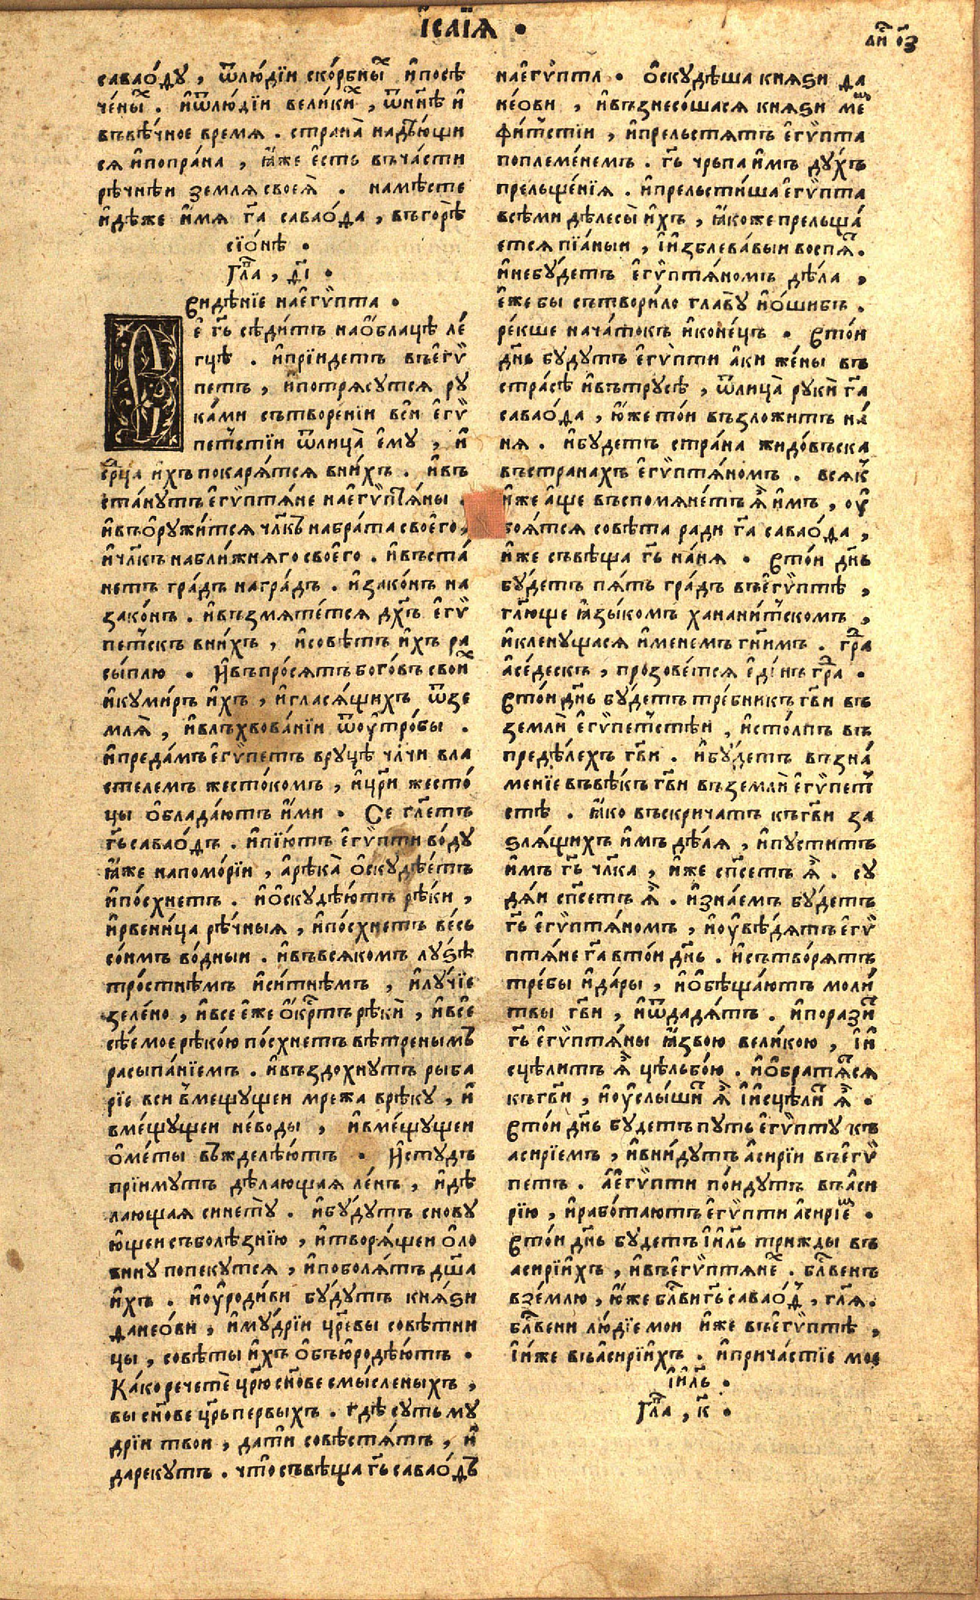 І҆саі́ѧ .
савао́ѳу , ѿлюді́и ско́рбныⷯ и҆посѣ
че́ныⷯ . и҆ѿлюді́и вели́киⷯ , ѿнн҃ѣ и҆
въвѣ́чное время . страна̀ надѣ́ющи
ся и҆попра́на , ꙗ҆́же є҆́сть въча́сти
рѣ́чнѣи земля своеѧ̀ . намѣсте
и҆дѣ́же и҆́мя гⷭ҇а савао́ѳа , въгорѣ̀
сїо́нѣ .
Гла , ѳ҃і .
Видѣ́нїе наєгѵ́пта .
Се гⷭ҇ь сѣди́тъ наѻ҆́блацѣ ле́
гцѣ . и҆прїи́детъ въєгѵ́
петъ , и҆потрясу́тся ру
ка́ми сътворе́нїи вси̂ є҆гѵ́
петⷭ҇тїи ѿлица̀ є҆му , и҆
срⷣца и҆́хъ покаря́тся вни́хъ . и҆въ
ста́нутъ є҆гѵ́птяне наєгѵ́птⷶны .
и҆въѻ҆ружи́тся чл҃къ набра́та своего̀ ,
и҆чл҃къ набли́жняго своего . и҆въста́
нетъ гра́дъ награ́дъ . и҆зако́нъ на
зако́нъ . и҆възмяте́тся дх҃ъ є҆гѵ́
петⷭ҇къ вни́хъ , и҆совѣ́тъ и҆́хъ ра
сы́плю . И҆въпро́сятъ бого́въ свои́ⷯ
и҆куми́ръ и҆́хъ , и҆глася́щихъ ѿзе
мля̀ , и҆влъхвова́нїи ѿоутро́бы .
и҆преда́мъ є҆гѵ́петъ вру́цѣ чл҃чи вла
стелемъ жесто́комъ , и҆цр҃и жесто́
цы ѻ҆блада́ютъ и҆́ми . Се гл҃етъ
гⷭ҇ь савао́ѳъ . и҆пїю́тъ є҆гѵ́пти во́ду
ꙗ҆́же напомо́рїи , а҆рѣка̀ ѻ҆скудѣ́етъ
и҆по́схнетъ . и҆ѻ҆скудѣ́ютъ рѣ́ки ,
и҆рвени́ца рѣ́чныя , и҆по́схнетъ ве́сь
со́нмъ во́дныи . и҆въвся́комъ лу́зѣ
тро́стнѣмъ и҆си́тнѣмъ , и҆лу́чїе
зеле́но , и҆все є҆́же ѻ҆́крⷭ҇тъ рѣкѝ , и҆всѐ
сѣ́емое рѣко́ю по́схнетъ вѣ́тренымъ
расыпа́нїемъ . и҆въздохну́тъ рыба
рїе вси вмещущеи мре́жа врѣ́ку , и҆
вме́щущеи не́воды , и҆вме́щущеи
ѻ҆ме́ты въжделѣ́ютъ . И҆студъ
прїи́мутъ дѣ́лающая ле́нъ , и҆дѣ́
лающая сине́ту . и҆бу́дутъ снову
ю҆щеи съболѣ́знїю , и҆творя́щеи ѻ҆ло
вину попеку́тся , и҆поболя́тъ дш҃а
и҆́хъ . и҆оуро́диви бу́дутъ кня́зи
данео́ви , и҆му́дрїи цр҃евы совѣ́тни
цы , совѣ́ты и҆́хъ ѻ҆бъюродѣ́ютъ .
Ка́ко рече́те цр҃ю сн҃ове смы́сленыхъ ,
вы сн҃ове цр҃ь пе́рвыхъ . гдѣ̀ су́ть му
дрїи твои , да ти совѣстя́тъ , и҆
дареку́тъ . что̀ съвѣща̀ гⷭ҇ь савао́ѳъ
наєгѵ́птⷶ . Ѻ҆скудѣ́ша кня́зи да
не́ови , и҆възнесо́шася кня́зи меⷨ
фи́тстїи , и҆прельстя́тъ є҆гѵ́пта
поплеме́немъ . гⷭ҇ь чръпа и҆́мъ ду́хъ
прельще́нїя . и҆прельсти́ша є҆гѵ́пта
все́ми дѣ́лесы̀ и҆́хъ , ꙗ҆́коже прельща́
ется пїа́ныи , і҆и҆зблева́выи воспⷶ .
и҆небу́детъ є҆гѵ́птяномъ дѣ́ла ,
є҆́же бы сътвори́ло главу̀ и҆ѻ҆́шибъ .
ре́кше нача́токъ и҆коне́цъ . Вто́и
дн҃ь бу́дутъ є҆гѵ́пти а҆́ки же́ны въ
стра́сѣ и҆въ тру́сѣ , ѿлица̀ рукѝ гⷭ҇а
савао́ѳа , ю҆́же то́и възложи́тъ на́
ня . и҆бу́детъ страна жидо́вьска
въстрана́хъ є҆гѵ́птяномъ . вся́кⷽ
и҆́же а҆́ще въспомяне́тъ ѧ҆̀ и҆́мъ , оу҆
боя́тся совѣ́та ради гⷭ҇а савао́ѳа ,
и҆́же съвѣща̀ гⷭ҇ь на́ня . Вто́и дн҃ь
бу́детъ пя́ть гра́дъ въєгѵ́птѣ ,
гл҃юще ꙗ҆зы́комъ ханани́тскомъ ,
и҆клену́щася и҆́менемъ гн҃имъ . граⷣ
а҆седескъ , прозове́тся є҆ді́нъ граⷣ .
Вто́и дн҃ь бу́детъ тре́бникъ гв҃и въ
землѝ є҆гѵ́петⷭ҇тѣи , и҆сто́лпъ въ
предѣ́лехъ гв҃и . и҆бу́детъ възна́
менїе въвѣ́къ гв҃и въземлѝ є҆гѵ́петⷭ҇
стѣ . ꙗ҆́ко въскрича́тъ къгв҃и за
зля́щихъ и҆́мъ дѣ́ля , и҆пусти́тъ
и҆́мъ гⷭ҇ь чл҃ка , и҆́же сп҃сетъ ѧ҆̀ . су
дя́и сп҃сетъ ѧ҆̀ . и҆зна́емъ бу́детъ
гⷭ҇ь є҆гѵ́птяномъ , и҆оувѣ́дятъ є҆гѵ́
птяне гⷭ҇а вто́и дн҃ь . и҆сътворя́тъ
тре́бы и҆да́ры , и҆ѻ҆бѣща́ютъ моли́
твы гв҃и , и҆ѿдадя́тъ . и҆порази́ⷮ
гⷭ҇ь є҆гѵ́птяны ꙗ҆́звою вели́кою , і҆и҆
сцѣли́тъ ѧ҆̀ цѣльбо́ю . и҆ѻ҆братя́ⷮся
къгв҃и , и҆оуслы́шиⷮ ѧ҆̀ і҆и҆сцѣли́ⷮ ѧ҆̀ .
Вто́и дн҃ь бу́детъ пу́ть є҆гѵ́пту къ
асирі́емъ , и҆вни́дутъ а҆сирі́и въєгѵ́
петъ . а҆єгѵ́пти по́идутъ въаси
рі́ю , и҆рабо́таютъ є҆гѵ́пти а҆сирі́еⷨ .
Вто́и дн҃ь бу́детъ і҆и҃ль три́жды въ
асирі́ихъ , и҆въєгѵ́птянеⷯ . бл҃венъ
взе́млю , ю҆́же бл҃ви гⷭ҇ь савао́ѳ , гл҃я .
бл҃вени лю́дїе мои и҆́же въєгѵ́птѣ ,
і҆и҆́же въасирі́ихъ . и҆прича́стїе мое
і҆и҃ль .
Гла , к҃ .